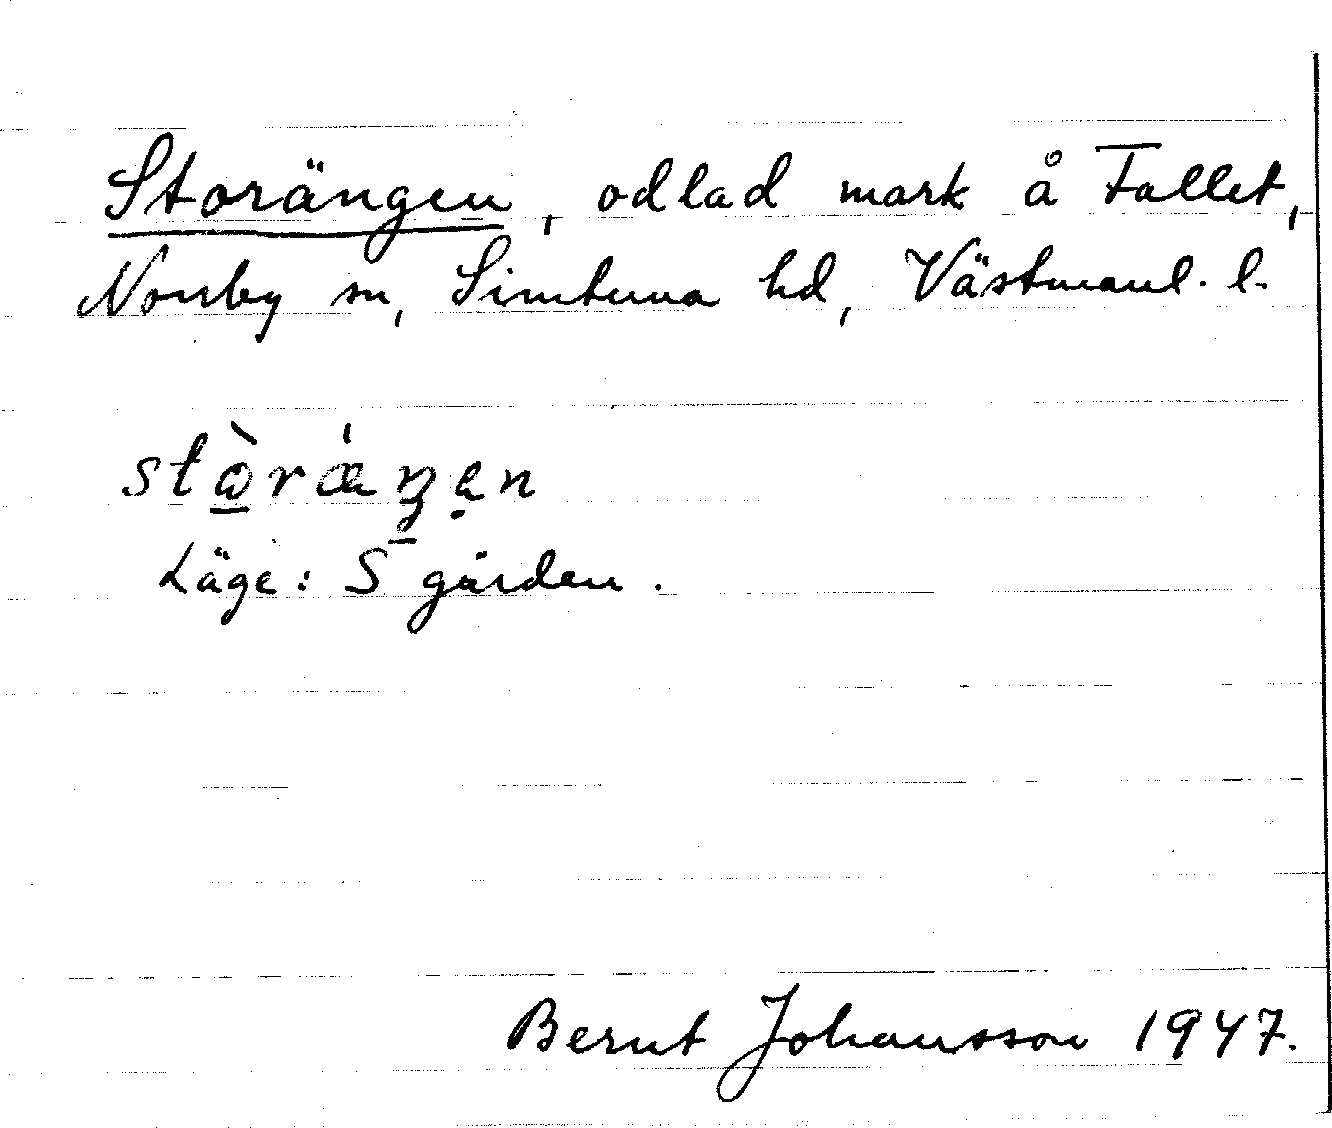 Storängen, odlad mark å Fallet,
Norrby sn, Simtuna hd, Västmanl. l.
Läge: S gården.
Bernt Johansson 1947.